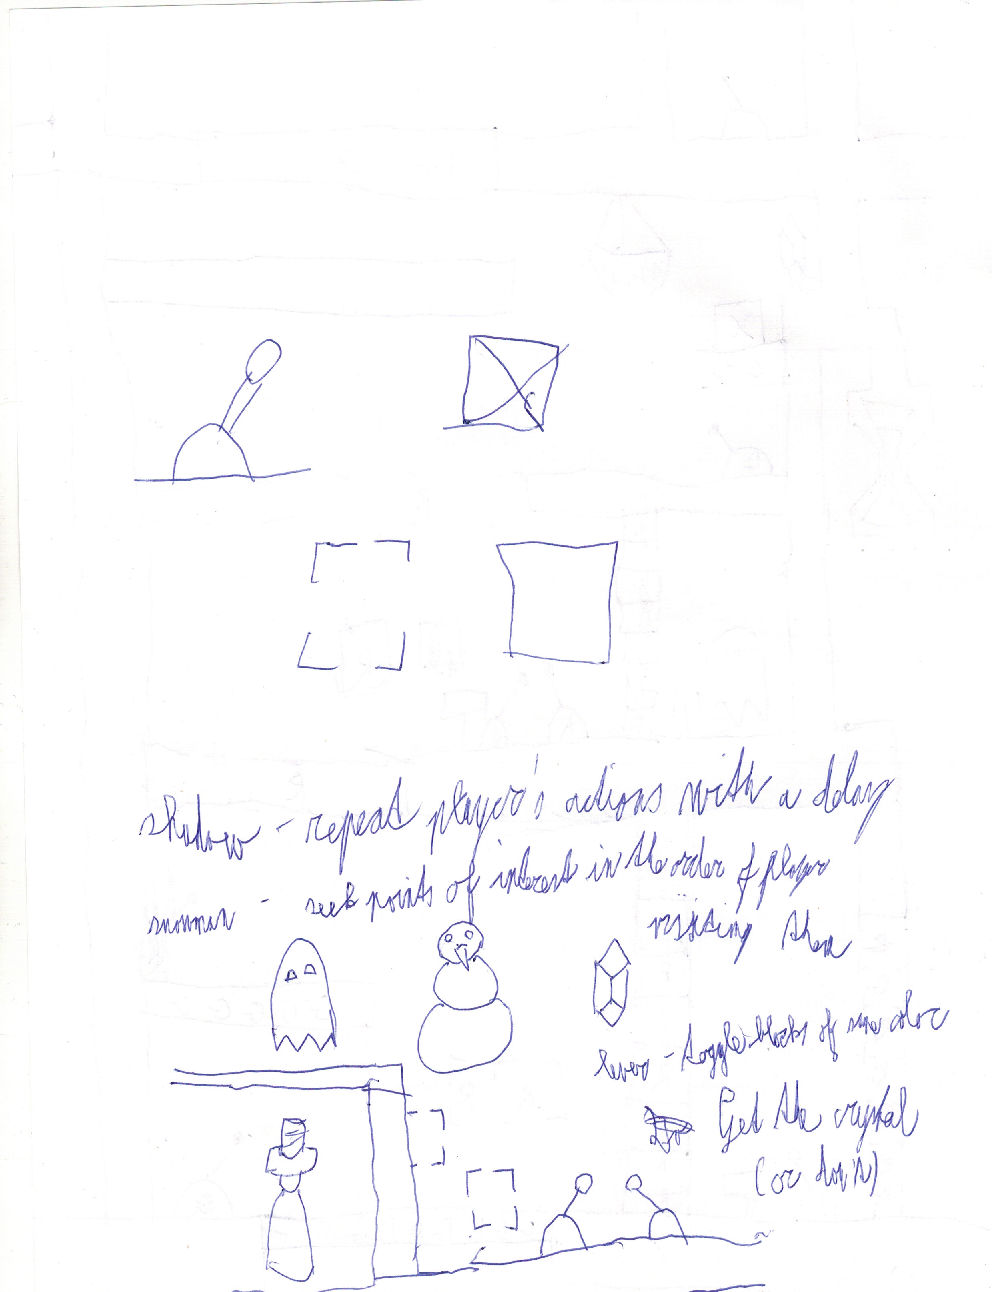 shadow - repeat player's actions with a delay
snowman - seek points of interest in the order of player
visiting them
lever - toggle blocks of same color
Get the crystal
(or don't)